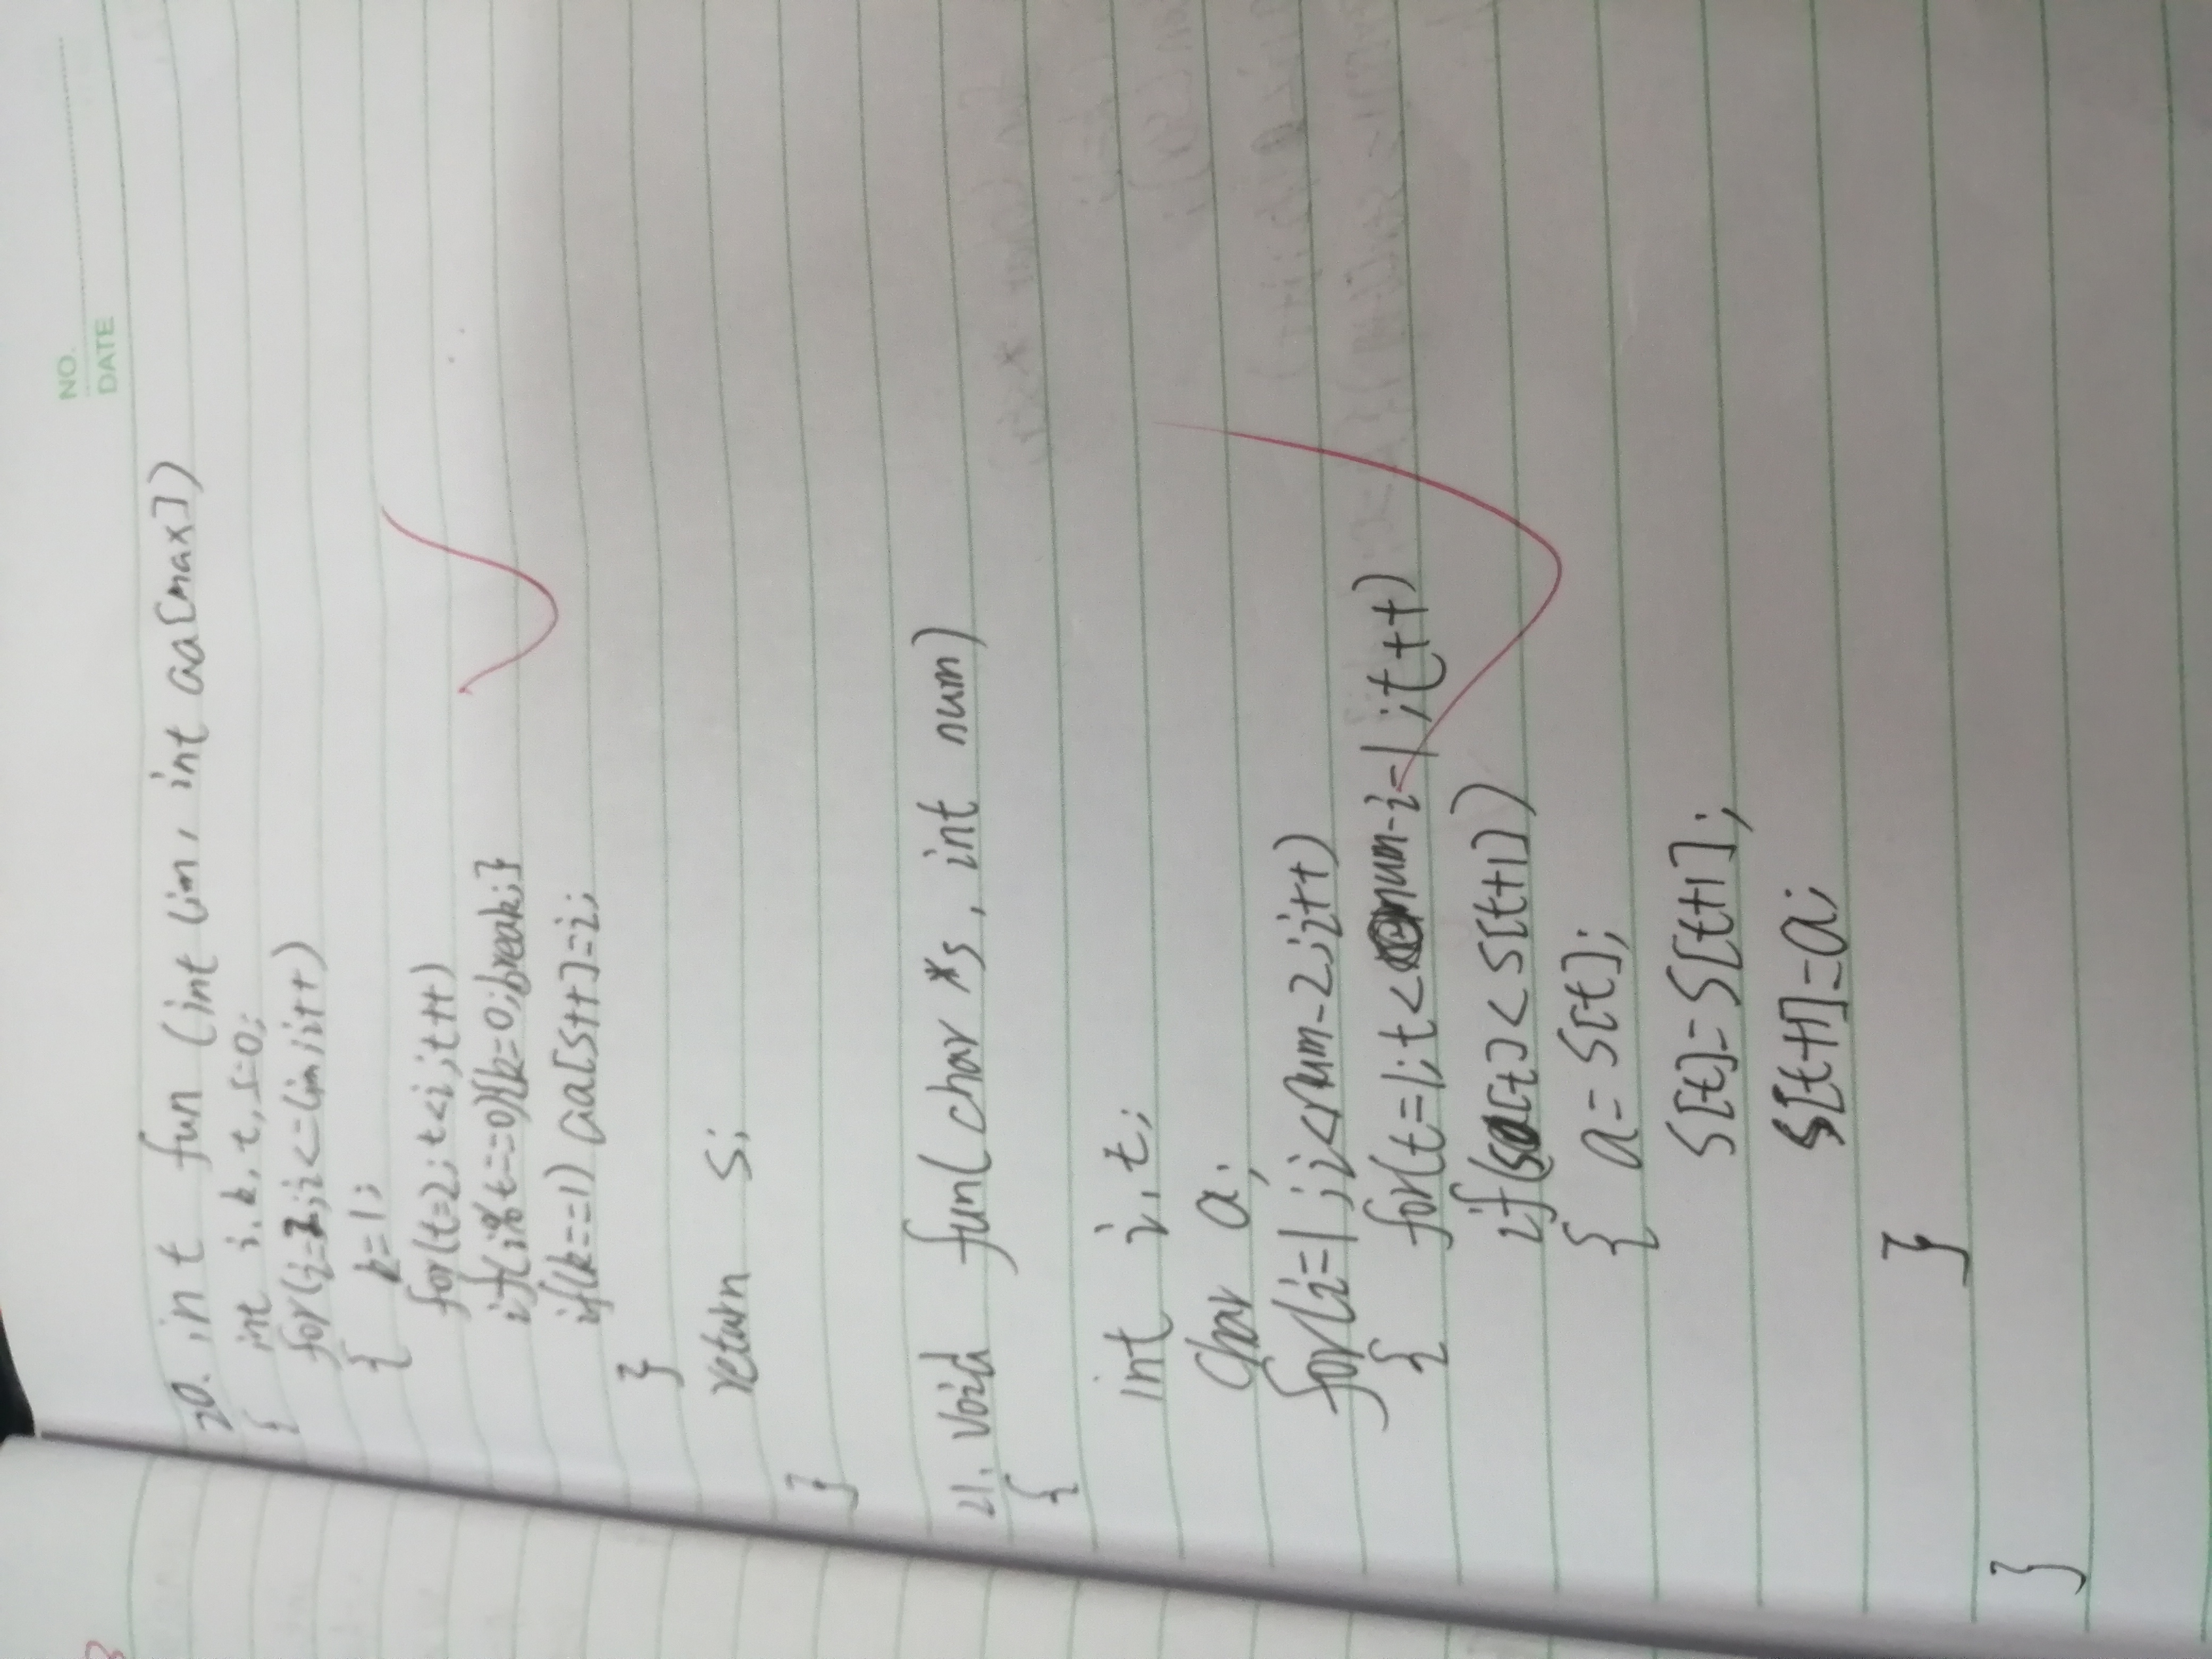 NO.
DATE
20. int fun (int lim, int aa[max])
{ int i, k, t, s=0;
for(i=2;i<=lim;i++)
{ k=1;
for(t=2;t<i;t++)
if(i%t==0){k=0;break;}
if(k==1) aa[s++]=i;
}
return s;
}
21. void fun(char *s, int num)
{
int i,t;
char a;
for(i=1;i<num-2;i++)
{ for(t=1;t<num-i-1;t++)
if(s[t]<s[t+1])
{ a=s[t];
s[t]=s[t+1];
s[t+1]=a;
}
}